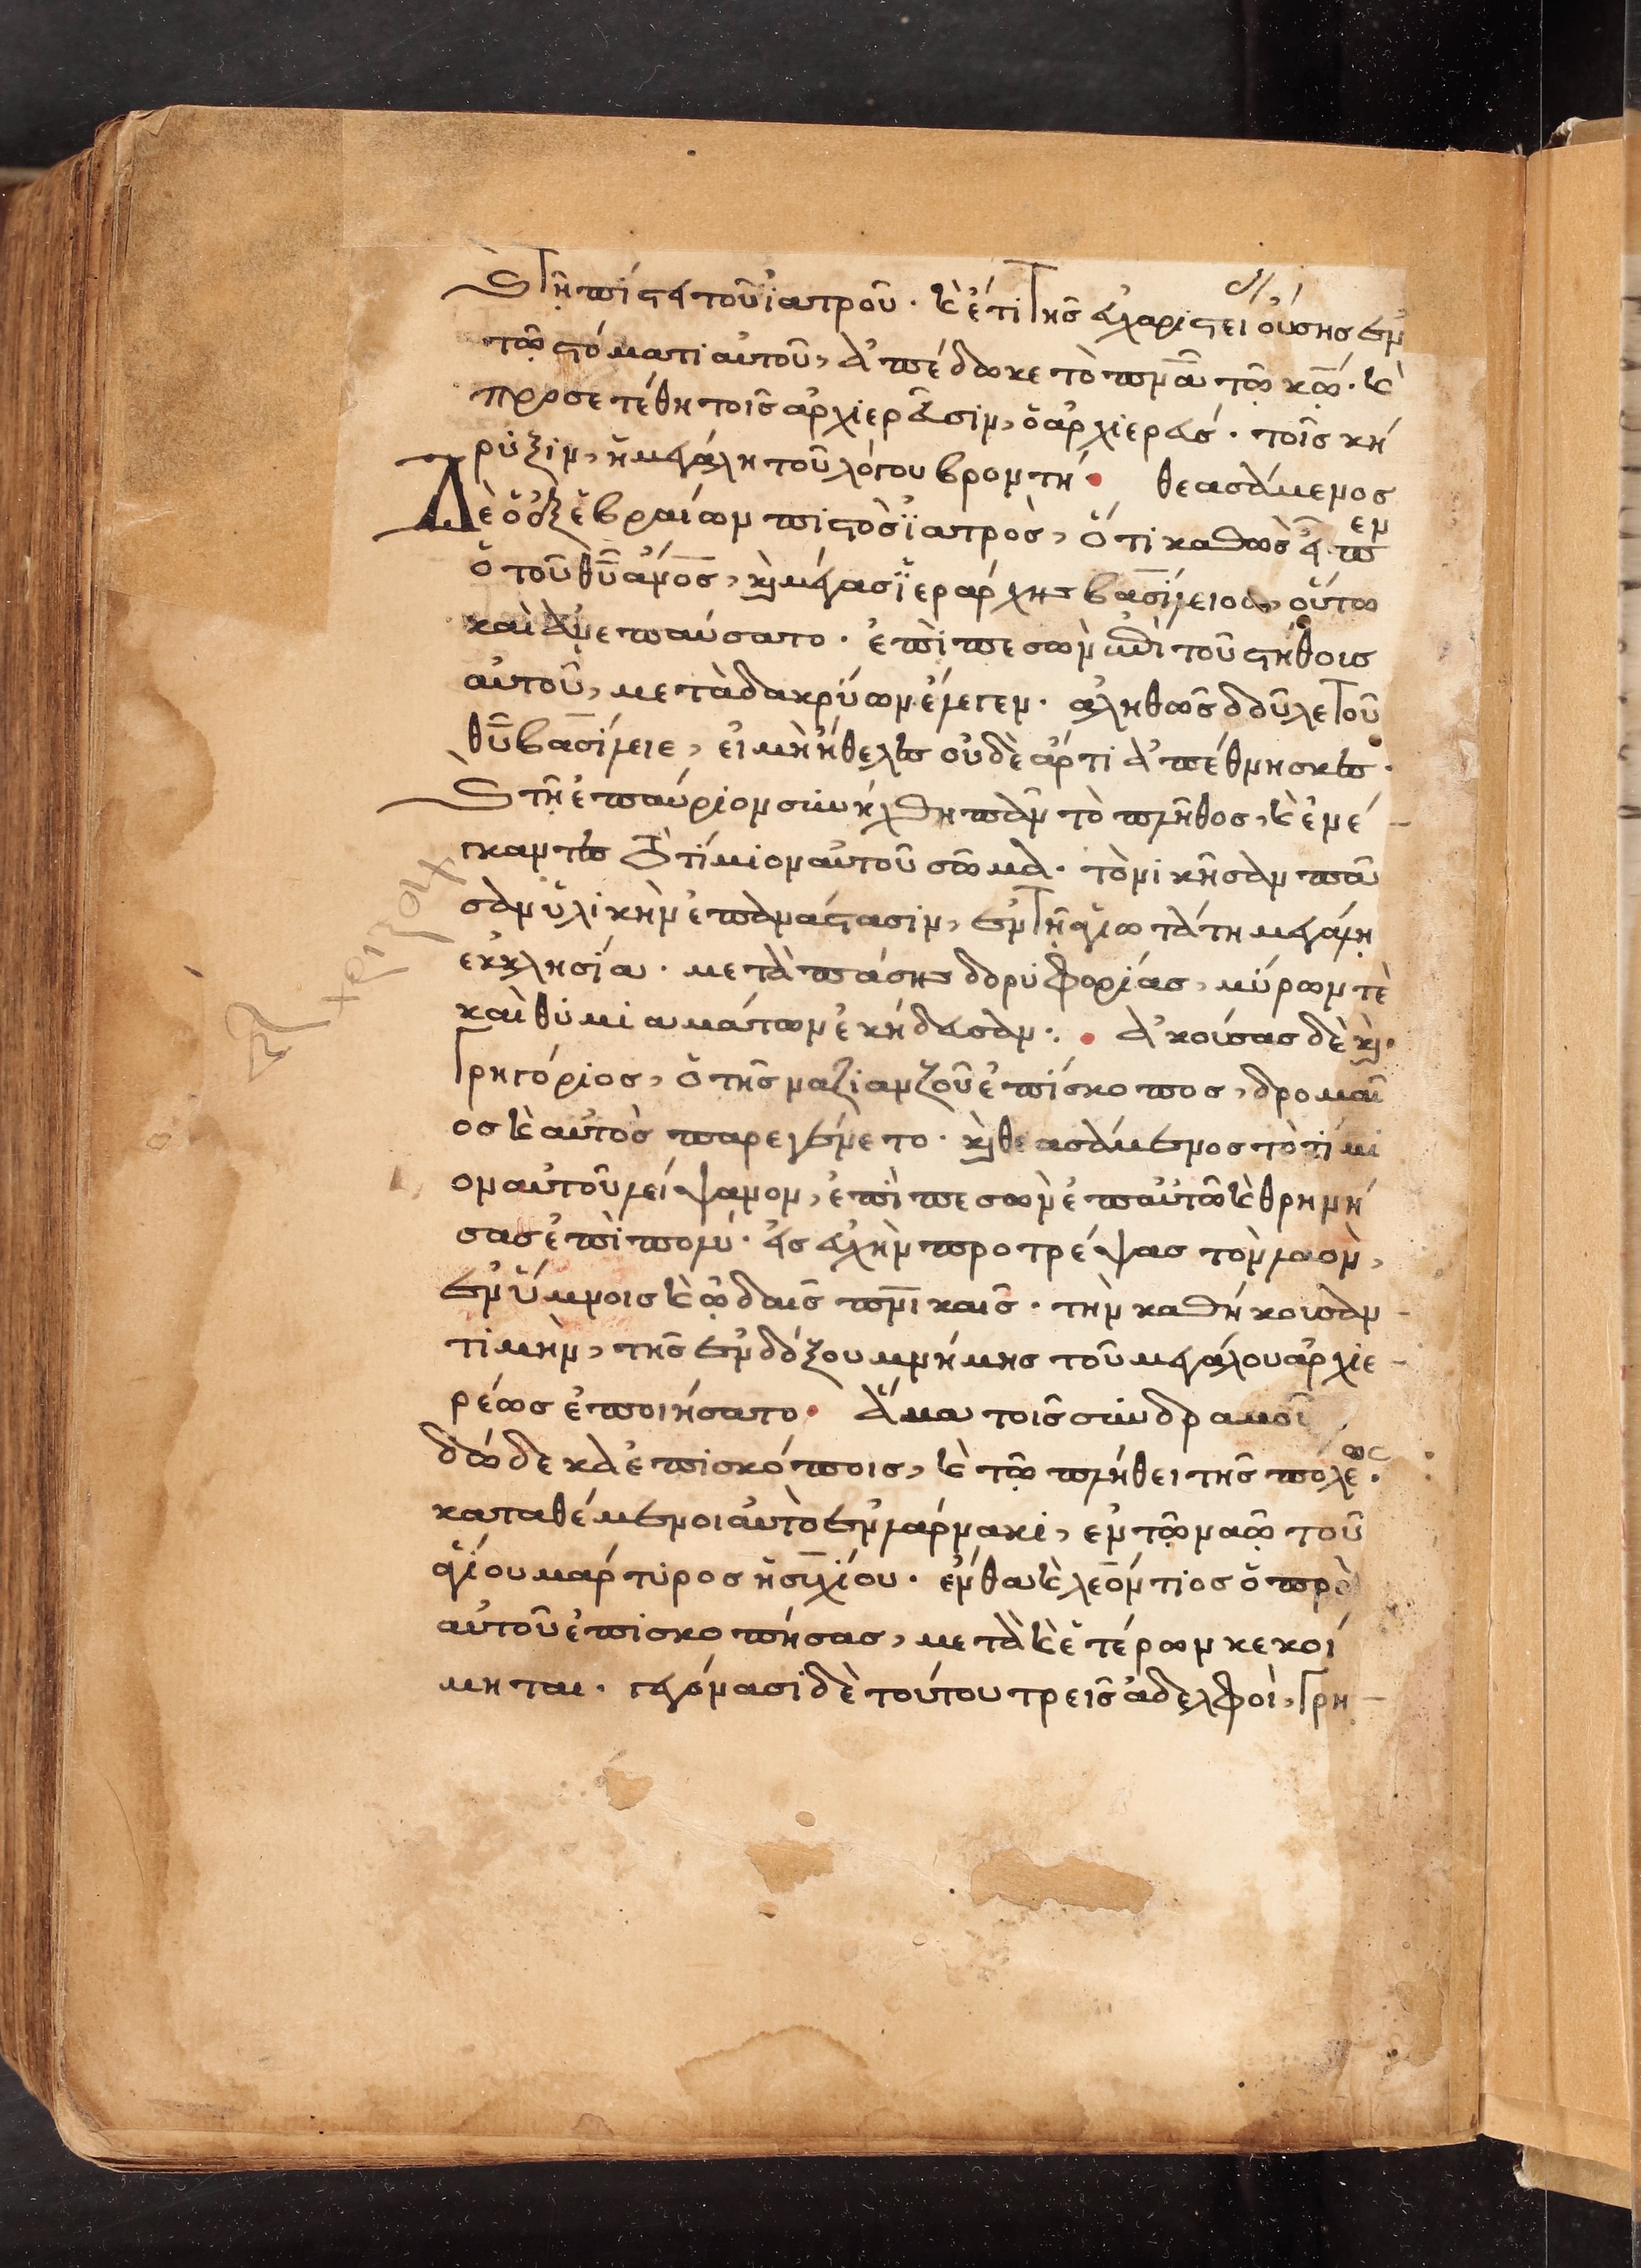 ἐπὶ τῆ πίστει τοῦ ἰατροῦ. καὶ ἔτι τῆς εὐχαριστείας οὔσης ἐν
τῶ στόματι αὐτοῦ, ἀπέδωκε τὸ πνᾶ τῶ κῶ. καὶ
προσετέθη τοῖς ἀρχιερεῦσιν, ὁ ἀρχιερεύς. τοῖς κή
ρυξιν, ἡ μεγάλη τοῦ λόγου βροντή. θεασάμενος
δὲ ὁ ἐξ ἑβραίων πιστὸς ἰατρὸς, ὅτι καθὼς εἶπεν
ὁ τοῦ θῦ ἄνος, καὶ μέγας ἱεράρχης βασίλειος, οὕτω
καὶ ἀνεπαύσατο. ἐπιπεσὼν ἐπὶ τοῦ στήθους
αὐτοῦ, μετὰ δακρύων ἔλεγεν. ἀληθῶς δοῦλε τοῦ
θῦ βασίλειε, εἰ μὴ ἤθελες οὐδὲ ἄρτι ἀπέθνησκες.
ἐπὶ τῆ ἐπαύριον συνήχθη πᾶν τὸ πλῆθος, καὶ ἐνέ-
γκαντες τὸ τίμιον αὐτοῦ σῶμα. τὸ νικῆσαν πᾶ
σαν ὑλικὴν ἐπανάστασιν, ἐν τῆ ἁγιωτάτη μεγάλη
ἐκκλησία. μετὰ πάσης δορυφορίας, μύρων τὲ
καὶ θυμιαμάτων ἐκήδευσαν. ἀκούσας δὲ καὶ
γρηγόριος, ὁ τῆς ναζιανζοῦ ἐπίσκοπος, δρομαῖ
ος καὶ αὐτὸς παρεγένετο. καὶ θεασάμενος τὸ τίμι
ον αὐτοῦ λείψανον, ἐπιπεσὼν ἐπ αὐτῶ καὶ θρηνή
σας ἐπὶ πολύ. εἰς εὐχὴν προτρέψας τὸν λαὸν,
ἐν ὕμνοις καὶ ὠδαῖς πνικαῖς. τὴν καθήκουσαν-
τιμὴν, τῆς ἐνδόξου μνήμης τοῦ μεγάλου ἀρχιε-
ρέως ἐποιήσατο. ἅμα τοῖς συνδραμοῦ
δώδεκα ἐπισκόποις, καὶ τῶ πλήθει τῆς πόλεως.
καταθέμενοι αὐτὸ ἐν λάρνακι, ἐν τῶ ναῶ τοῦ
ἁγίου μάρτυρος ἡσυχίου. ἔνθα καὶ λεόντιος ὁ πρὸ
αὐτοῦ ἐπισκοπήσας, μετὰ καὶ ἑτέρων κεκοί
μηται. γεγόνασι δὲ τούτου τρεῖς ἀδελφοὶ, γρη-